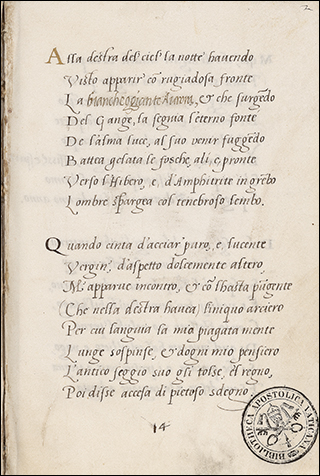 2
Alla destra del ciel la notte havendo
Visto apparir cõ rugiadosa fronte
La biancheggiante Aurora, & che surgẽdo
Del Gange, la seguia l'eterno fonte
De l'alma luce, al suo venir fuggẽdo
Battea gelata le fosche ali, e, pronte
Verso l'Hibero, e, d'Amphitrite in grẽbo
L'ombre spargea col tenebroso lembo.
Quando cinta d'acciar puro, e, lucente
Vergin', d'aspetto dolcemente altero,
M'apparue incontro, & cõ l'hasta pũgente
(Che nella destra hauea) l'iniquo arciero
Per cui languia la mia piagata mente
Lunge sospinse, & d'ogni mio pensiero
L'antico seggio suo gli tolse, e'l regno,
Poi disse accesa di pietoso sdegno
14
BIBLIOTHECA APOSTOLICA VATICANA